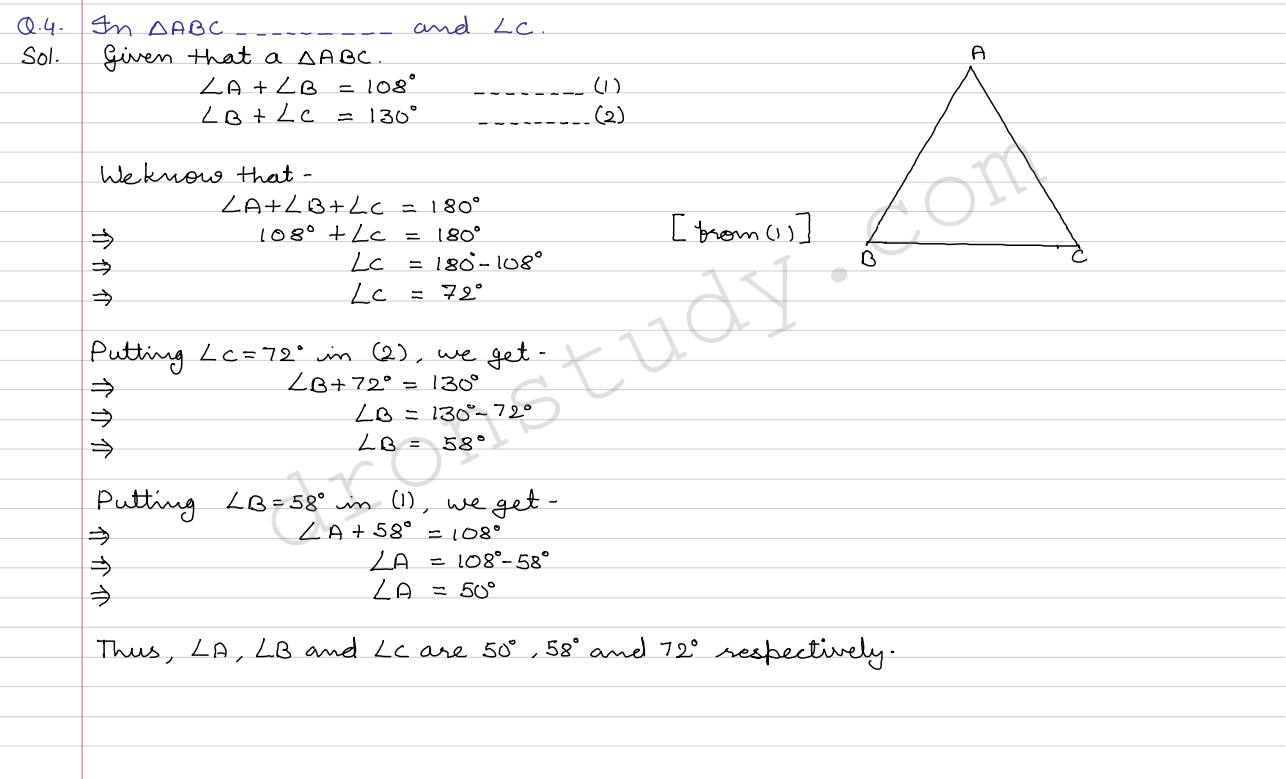 Q.4. In △ABC --------- and ∠C.
Sol. Given that a △ABC.
∠A + ∠B = 108° --------- (1)
∠B + ∠C = 130° --------- (2)
We know that -
∠A+∠B+∠C = 180°
⇒ 108° + ∠C = 180° [from (1)]
⇒ ∠C = 180°-108°
⇒ ∠C = 72°
Putting ∠C=72° in (2), we get -
⇒ ∠B+72° = 130°
⇒ ∠B = 130°-72°
⇒ ∠B = 58°
Putting ∠B=58° in (1), we get -
⇒ ∠A + 58° = 108°
⇒ ∠A = 108°-58°
⇒ ∠A = 50°
Thus, ∠A, ∠B and ∠C are 50°, 58° and 72° respectively.
A
B C
dronstudy.com